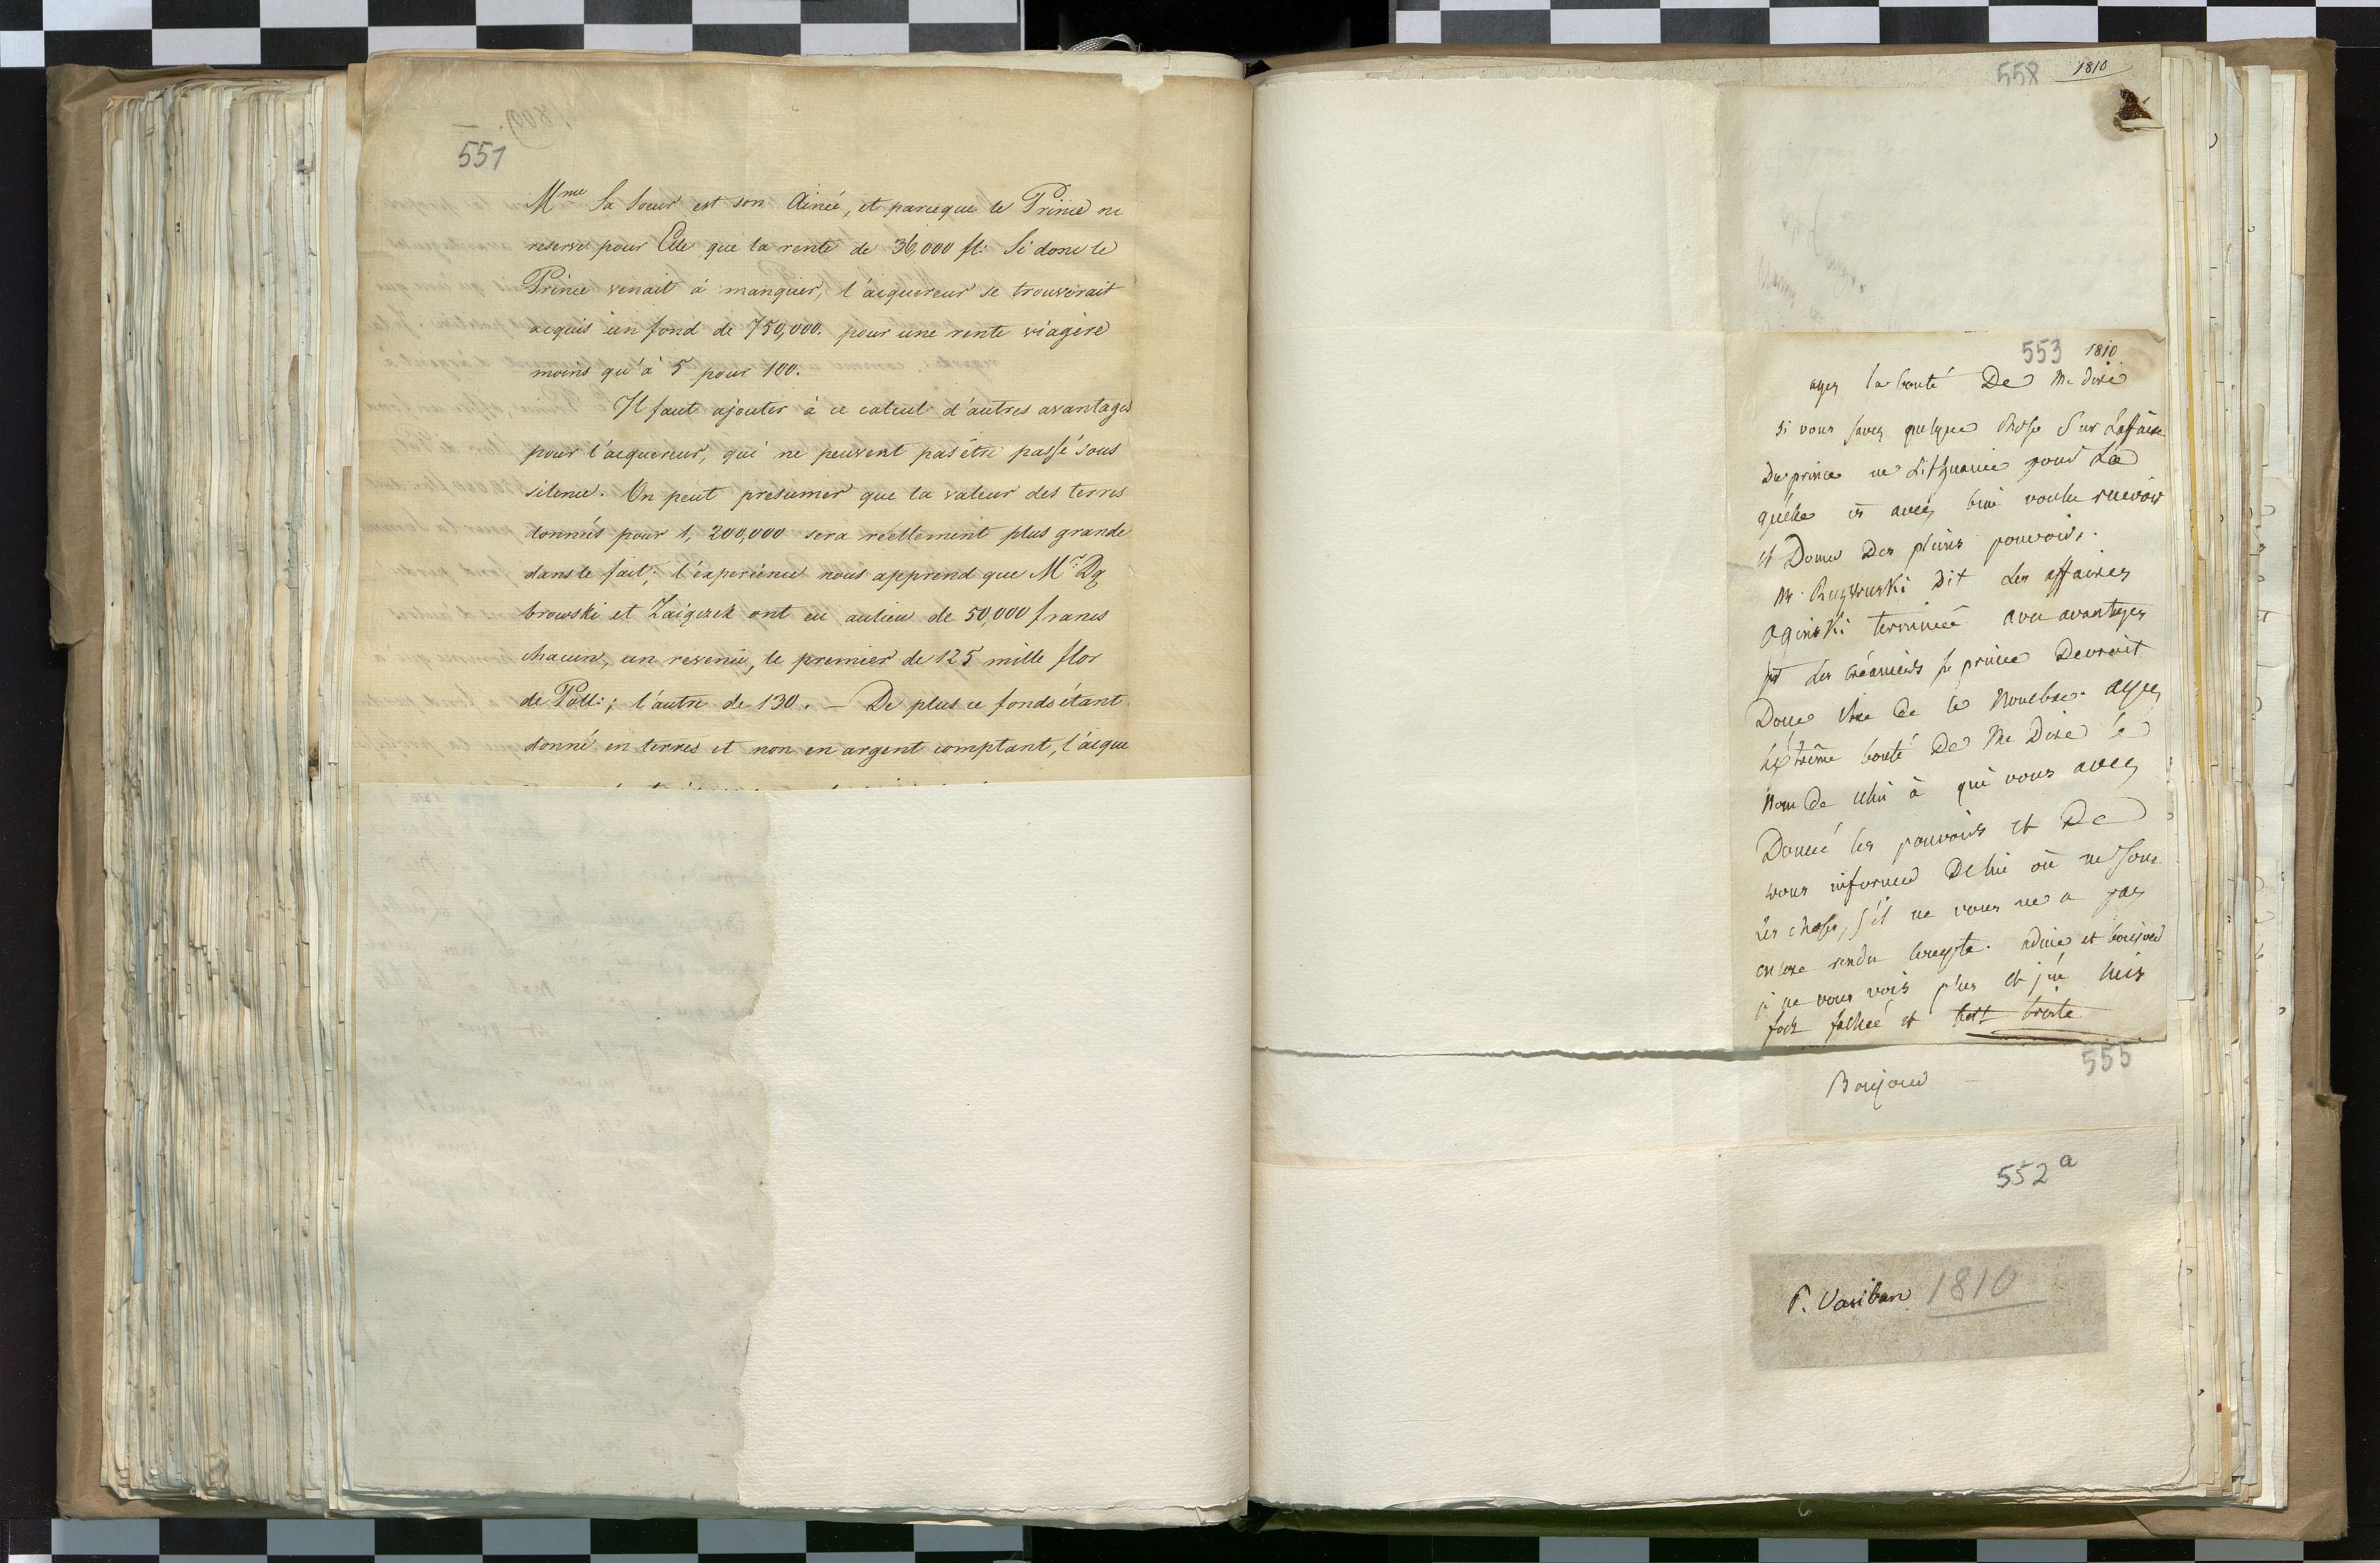 551
Mme Sa Soeur est son Ainée, et parceque le Prince ne
reserve pour Elle que la rente de 36,000 fl: Si donc le
Prince venait à manquer, l'acquereur se trouverait
acquis un fond de 750,000. pour une rente viagère
moins qu'à 5 pour 100.
Il faut ajouter à ce calcul d'autres avantages
pour l'acquereur, qui ne peuvent pas être passé sous
silence. On peut presumer que la valeur des terres
donnés pour 1,200,000 sera réellement plus grande
dans le fait; l'experience nous apprend que Mr: Dą
browski et Zaigczek ont eu aulieu de 50,000 francs
chacun, un revenu, le premier de 125 mille flor
de Poll:; l'autre de 130. — De plus ce fonds étant
donné en terres et non en argent comptant, l'acque
558 1810
553 1810
ayez la bonté De Me dire
si vous savez quelque chose Sur L'affaire
Du prince en Lithuanie pour La
quelle avez bien voulu recevoir
et Donner Des pleins pouvoirs.
Mr. Dit Les affaires
Oginski terminée avec avantages
Les Créanciers le prince Devroit
Donc être de le Nombre. ayez
L'éxtrême bonté De Me Dire le
Nom De celui à qui vous avez
Donné les pouvoirs et De
vous informer De lui où en sont
Les choses, s'il ne vous en a pas
encore rendu Compte. adieu et bonjour
je ne vous vois plus et j'en suis
fort fachée et fort triste
555
Bonjour
552a
P. Vauban 1810